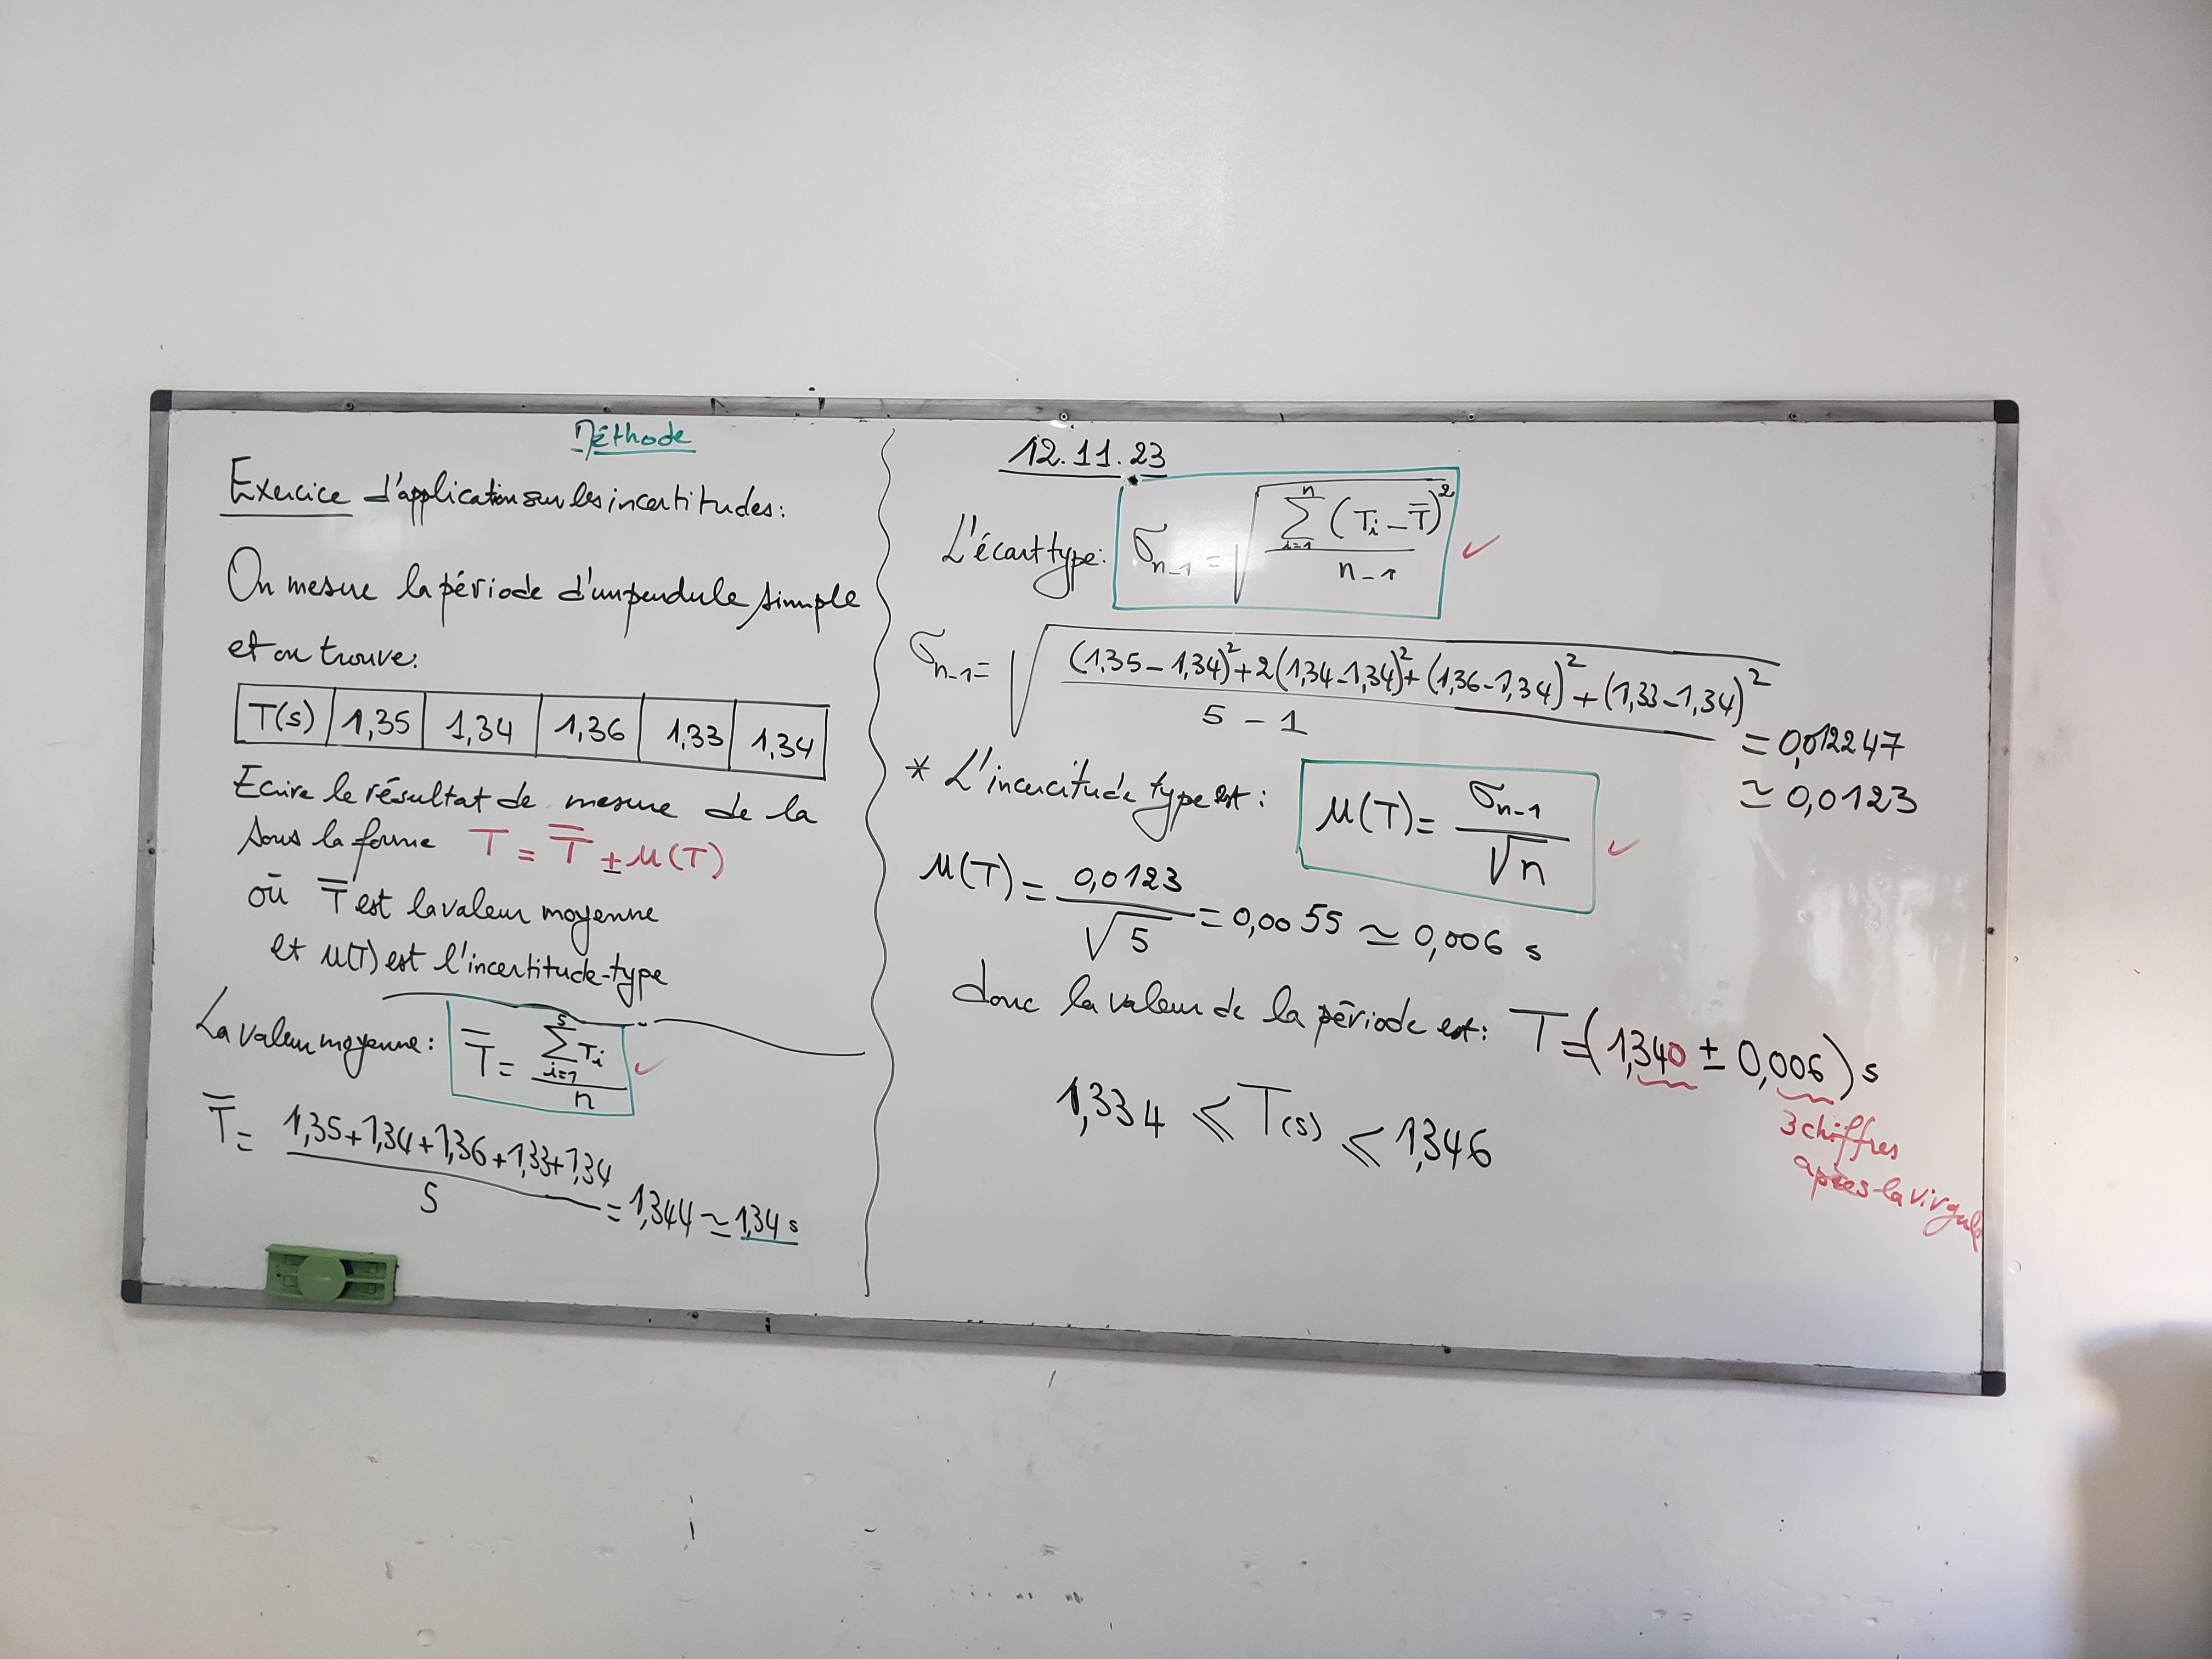 Méthode
Exercice d'application sur les incertitudes:
On mesure la période d'un pendule simple
et on trouve:
T(s) 1,35 1,34 1,36 1,33 1,34
Ecrire le résultat de mesure de la
sous la forme T = T̅ ± u(T)
où T̅ est la valeur moyenne
et u(T) est l'incertitude-type
La valeur moyenne: T̅ = (∑_{i=1}^{5} Ti)/n
T̅ = (1,35+1,34+1,36+1,33+1,34)/5 = 1,344 ≃ 1,34 s
12.11.23
L'écart type: σ_{n-1} = √(∑_{i=1}^{n} (Ti - T̅)²/(n-1))
σ_{n-1} = √(((1,35-1,34)²+2(1,34-1,34)²+(1,36-1,34)²+(1,33-1,34)²)/(5-1)) = 0,012247
≃ 0,0123
* L'incercitude type est: u(T) = σ_{n-1}/√n
u(T) = 0,0123/√5 = 0,0055 ≃ 0,006 s
donc la valeur de la période est: T=(1,340 ± 0,006) s
3 chiffres
après la virgule
1,334 ⩽ T(s) ⩽ 1,346